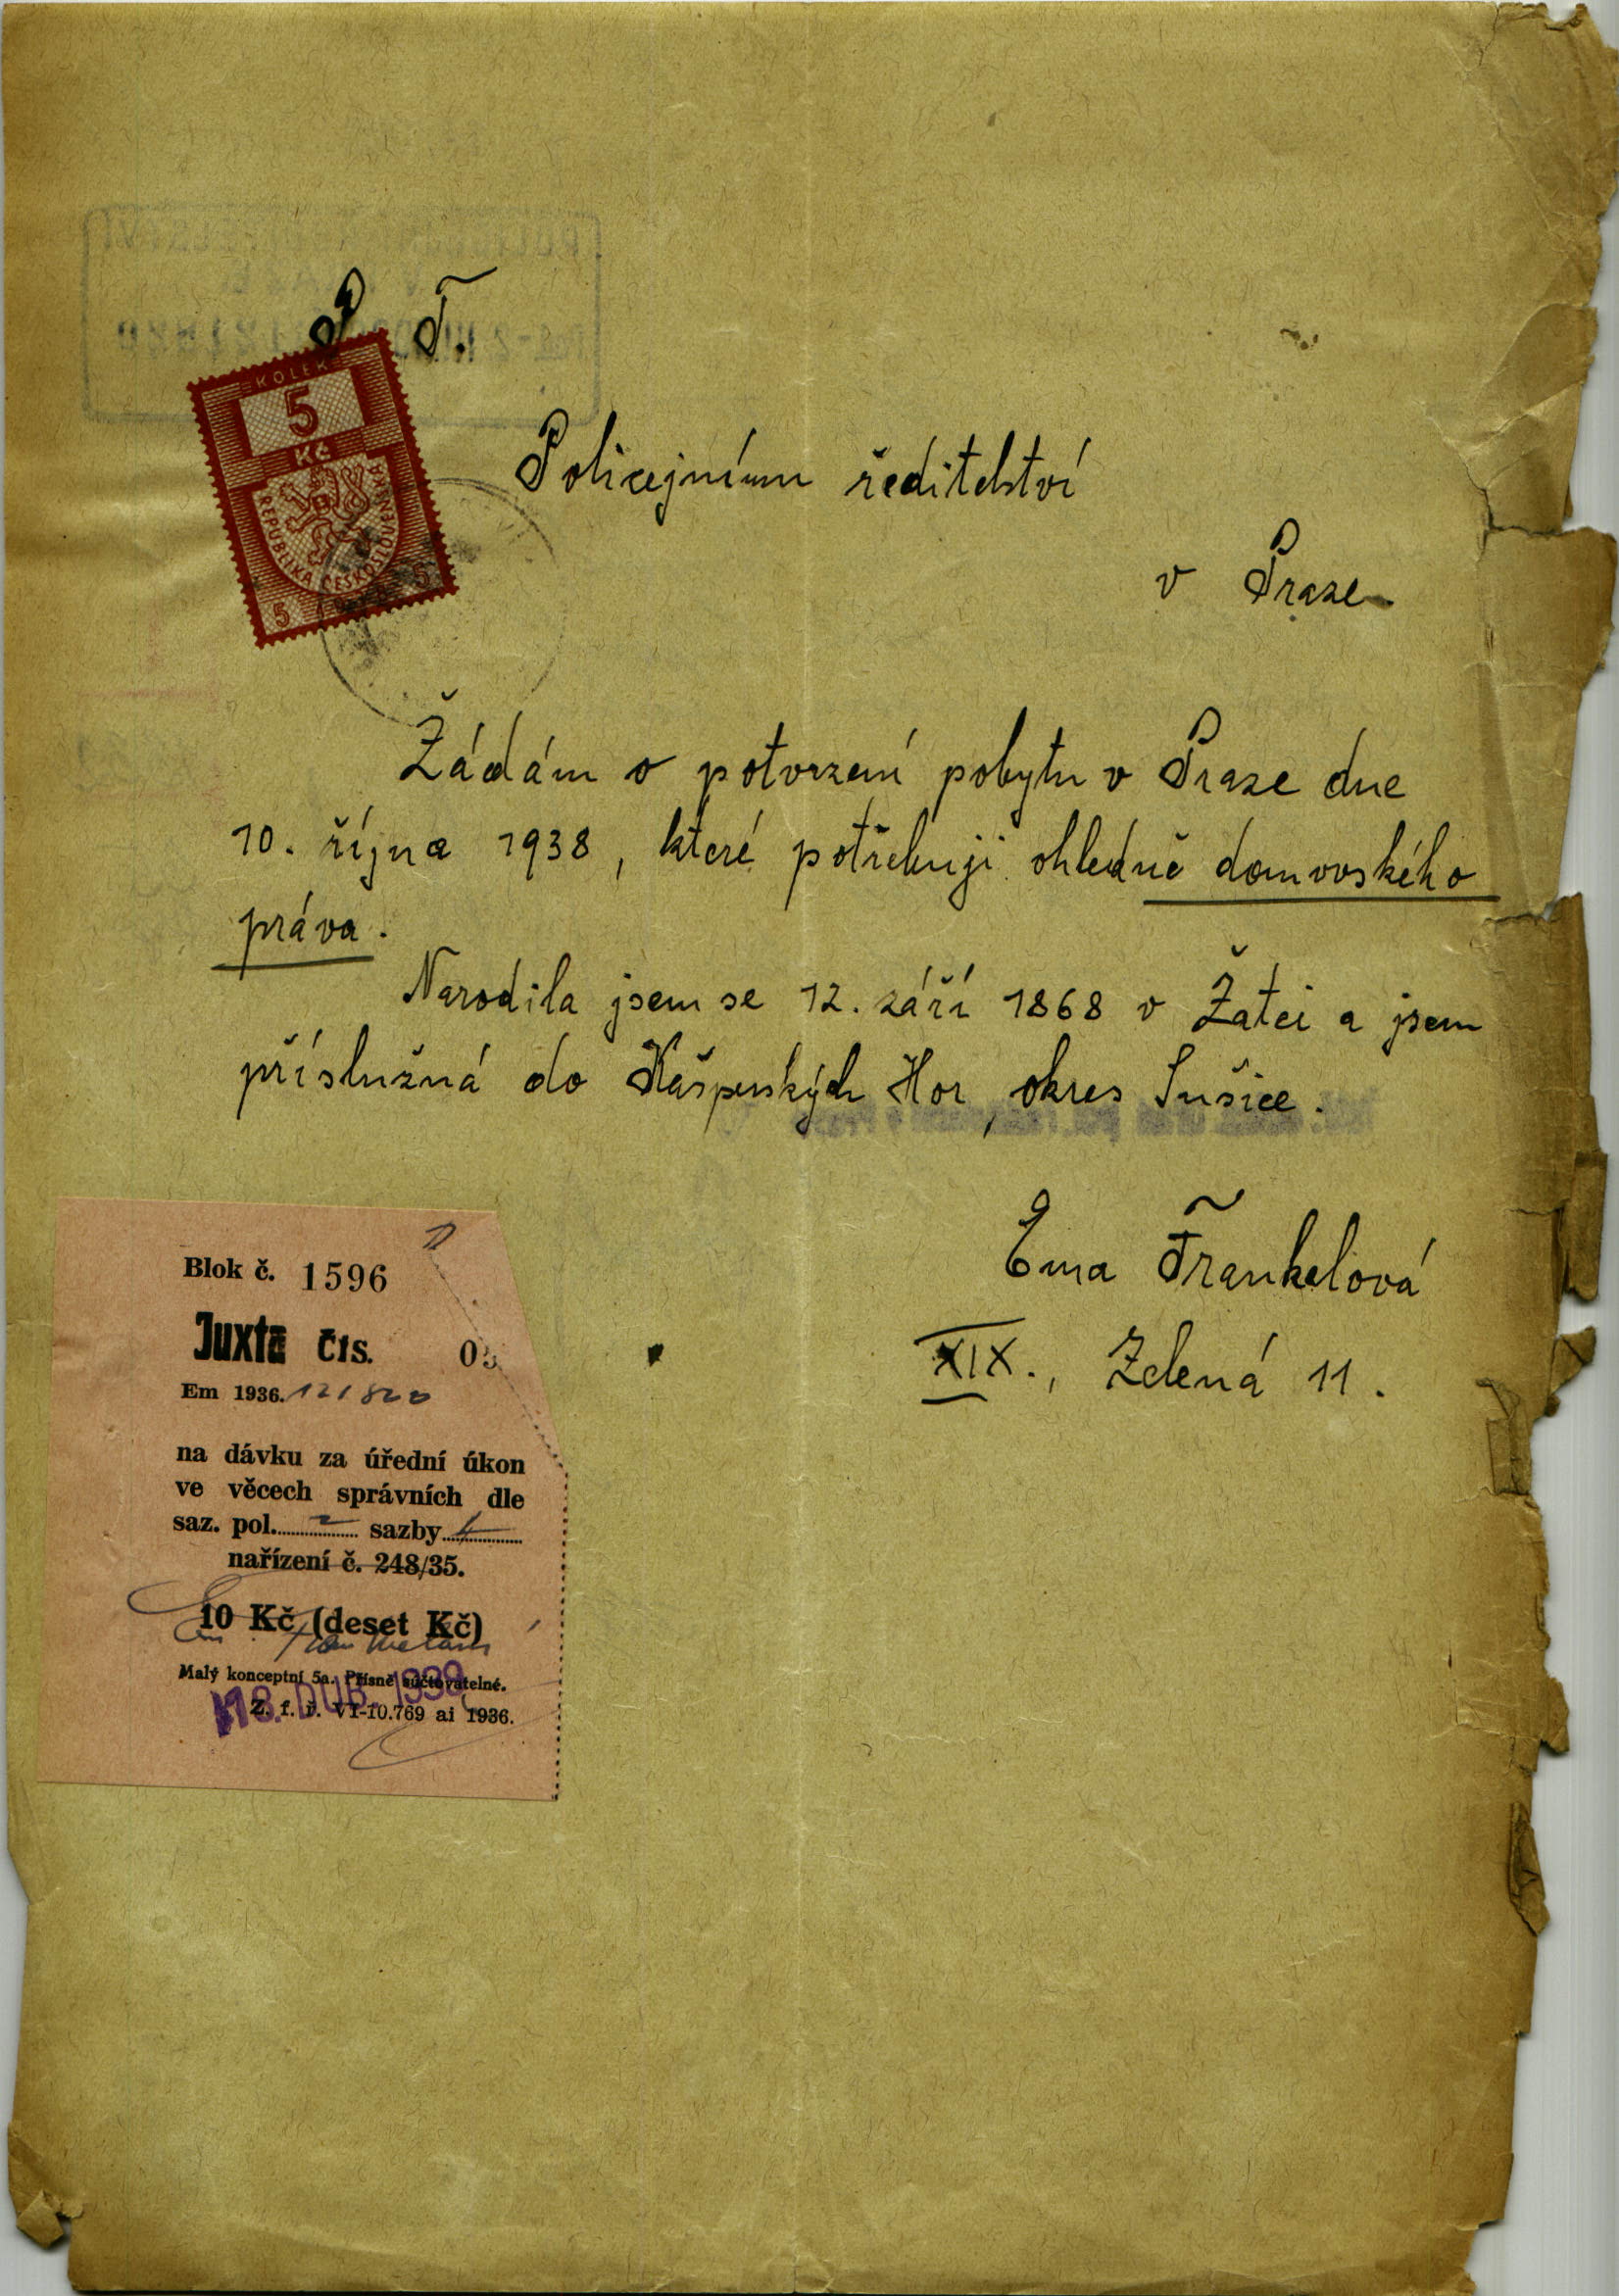 P. T.
KOLEK
5
Kč
REPUBLIKA ČESKOSLOVENSKÁ
5 5
Policejnímu ředitelství
v Praze
Žádám o potvrzení pobytu v Praze dne
10. října 1938, které potřebuji ohledně domovského
práva.
Narodila jsem se 12. září 1868 v Žatci a jsem
příslušná do Kašperských Hor, okres Sušice.
Ema Frankelová
XIX., Zelená 11.
Blok č. 1596
Juxta čís.
Em 1936. 121820
na dávku za úřední úkon
ve věcech správních dle
saz. pol. 2 sazby 4
nařízení č. 248/35.
10 Kč (deset Kč)
Malý konceptní 5a. Přísně súčtovatelné.
Z. f. ř. VI-10.769 ai 1936.